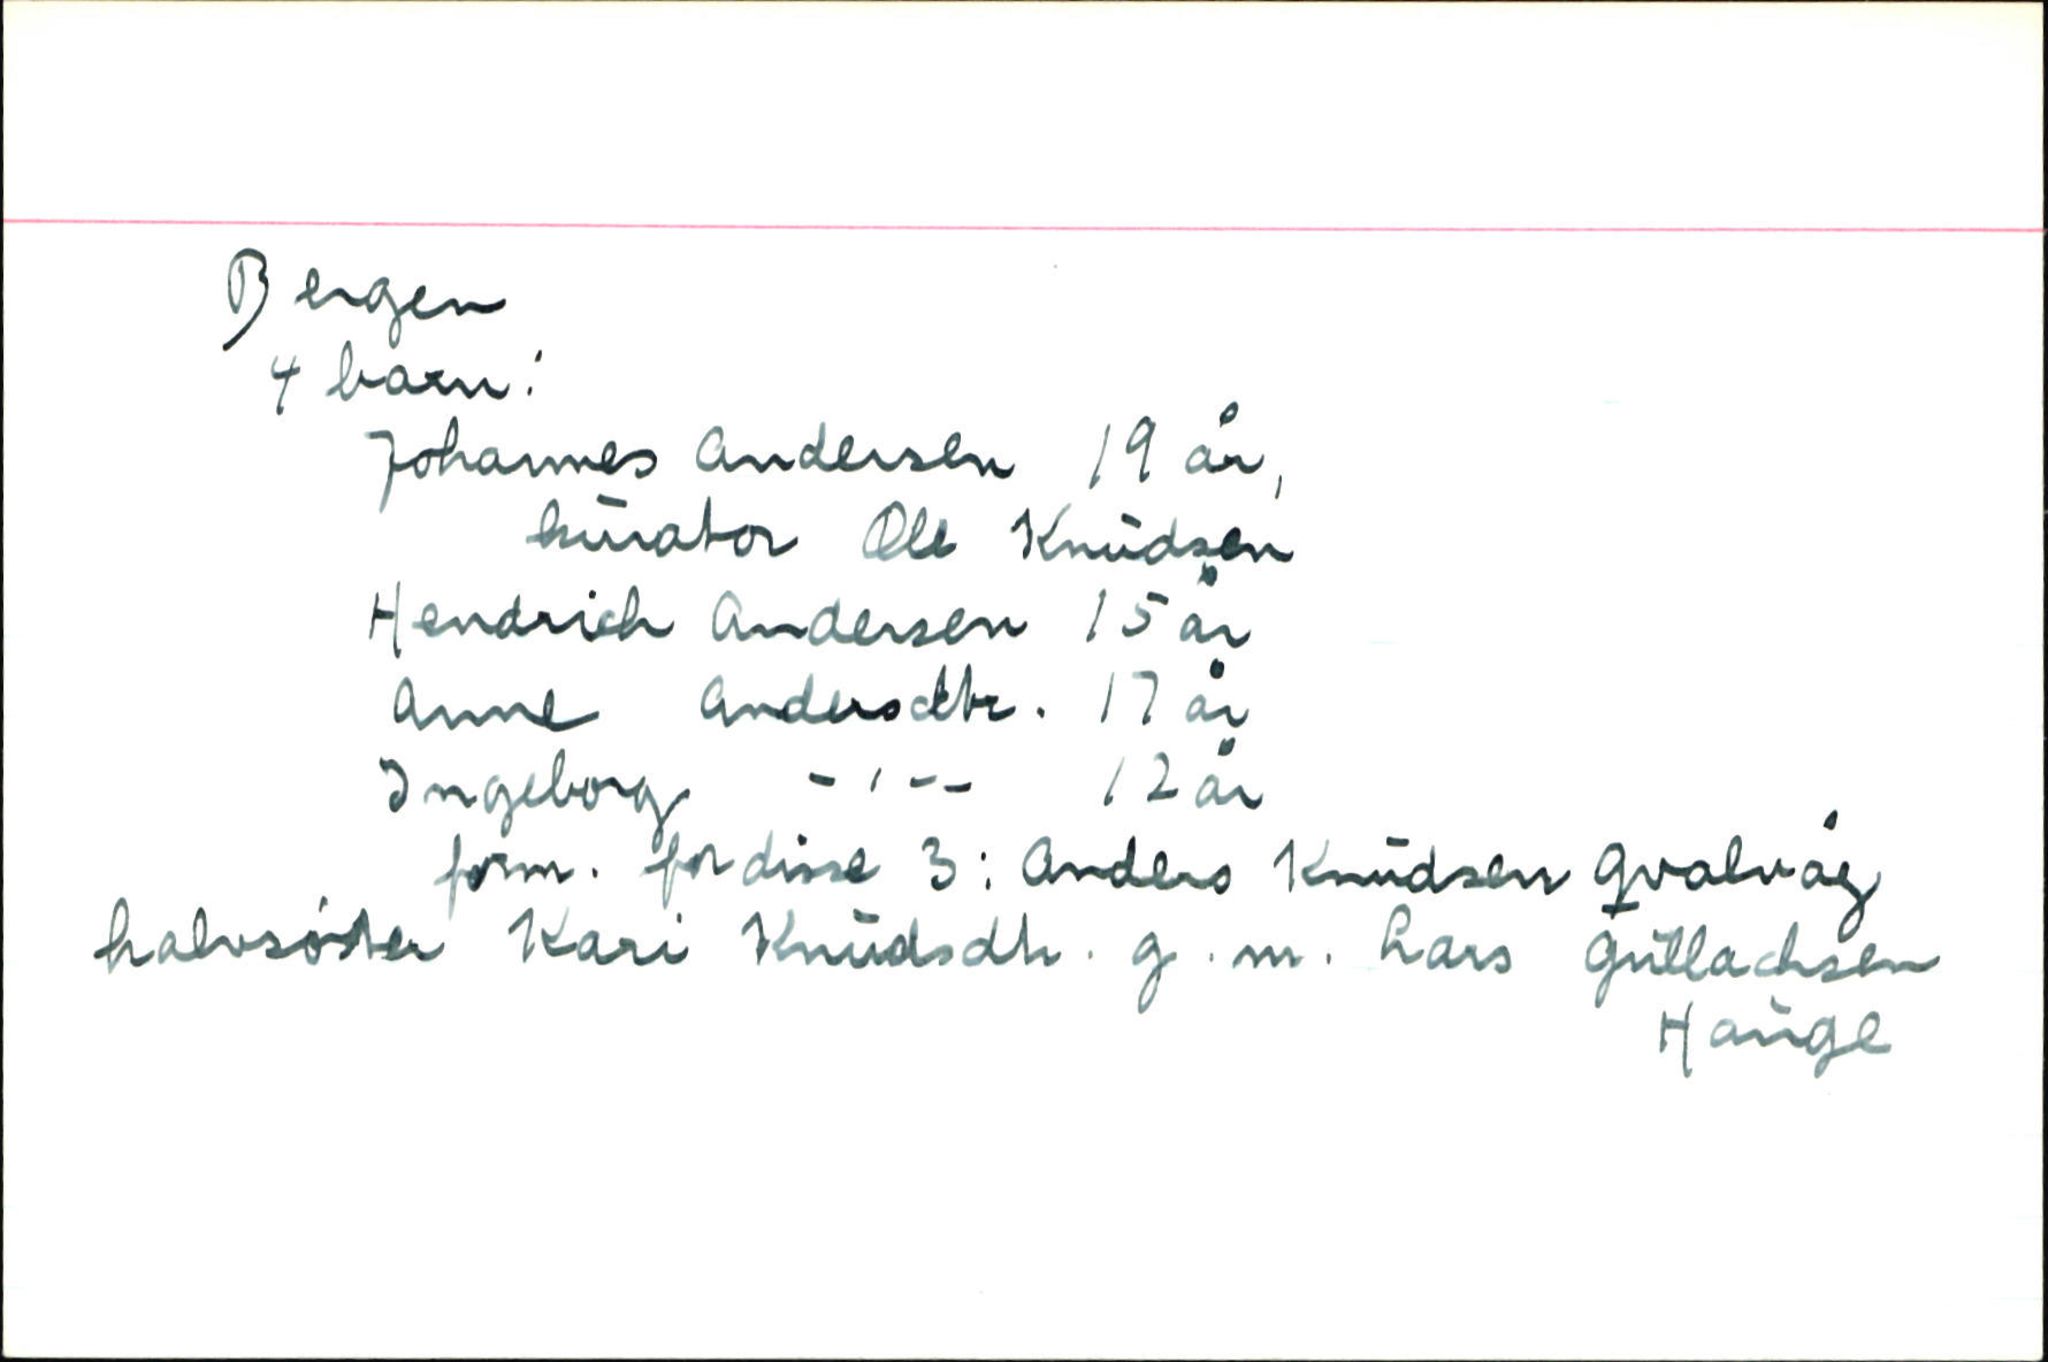 Bergen
4 barn:
Johannes Andersen 19 år,
kurator Ole Knudsen
Hendrich Andersen 15 år
Anne Andersdtr. 17 år
Ingeborg -'-- 12 år
form. for disse 3: Anders Knudsen Qvalvåg
halvsøster Kari Knudsdtr. g.m. Lars Gullachsen
Hauge